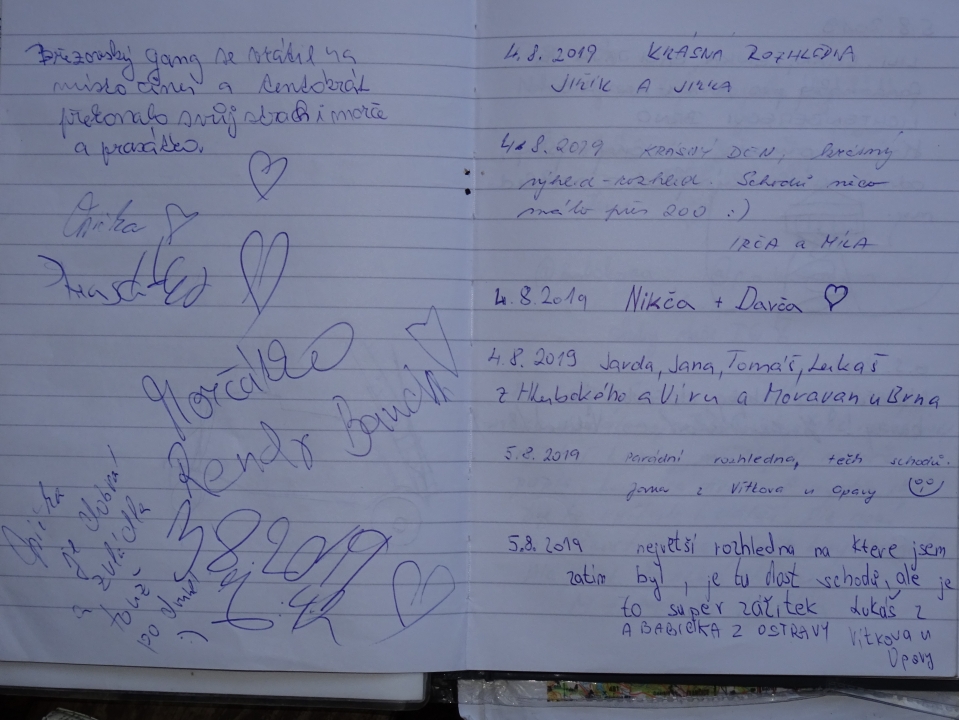 Březovský gang se vrátil na
místo činu a tentokrát
překonalo svůj strach i morče
a prasátko.
Morčátko
3.8.2019
Opička
je dobrá!
a zvládla
to už
po druhé
:)
4.8.2019 KRÁSNÁ ROZHLEDNA
JIŘÍK A JIRKA
4.8.2019 KRÁSNÝ DEN, krásný
výhled-rozhled. Schodů něco
málo přes 200 :)
IRČA a MÍLA
4.8.2019 Nikča + Darča ♡
4.8.2019 Jarda, Jana, Tomáš, Lukáš
z Hlubokého a Víru a Moravan u Brna
5.8.2019 Parádní rozhledna, těch schodů.
Jana z Vítkova u Opavy
5.8.2019 největší rozhledna na ktere jsem
zatim byl, je tu dost schodů, ale je
to super zážitek Lukáš z
Vítkova u
Opavy
A BABIČKA Z OSTRAVY